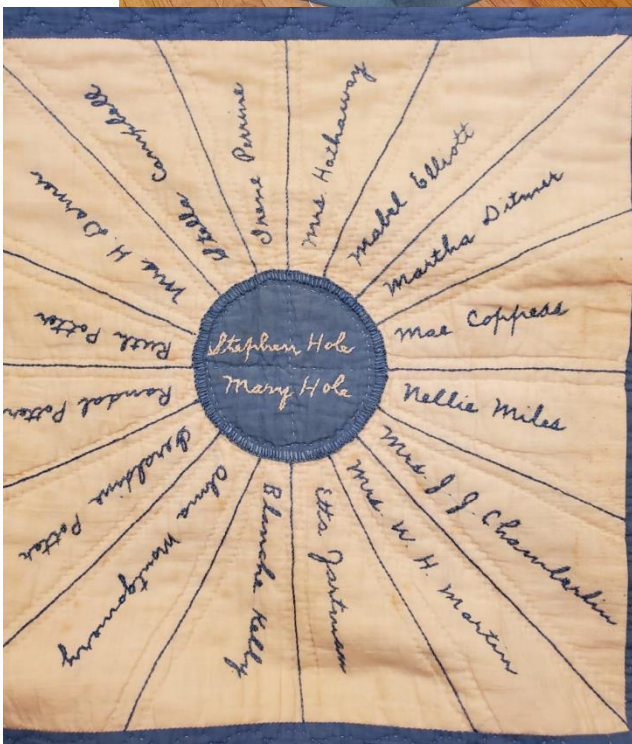 Stephen Hole
Mary Hole
Irene Perrine
Mrs Hathaway
Mabel Elliott
Martha Ditmer
Mae Coppess
Nellie Miles
Mrs. J. J. Chamberlin
Mrs. W. H. Martin
Etta
Blanche Kelly
Alma Montgomery
Geraldine Potter
Randal Potter
Ruth Potter
Mrs H.
Stella Campbell